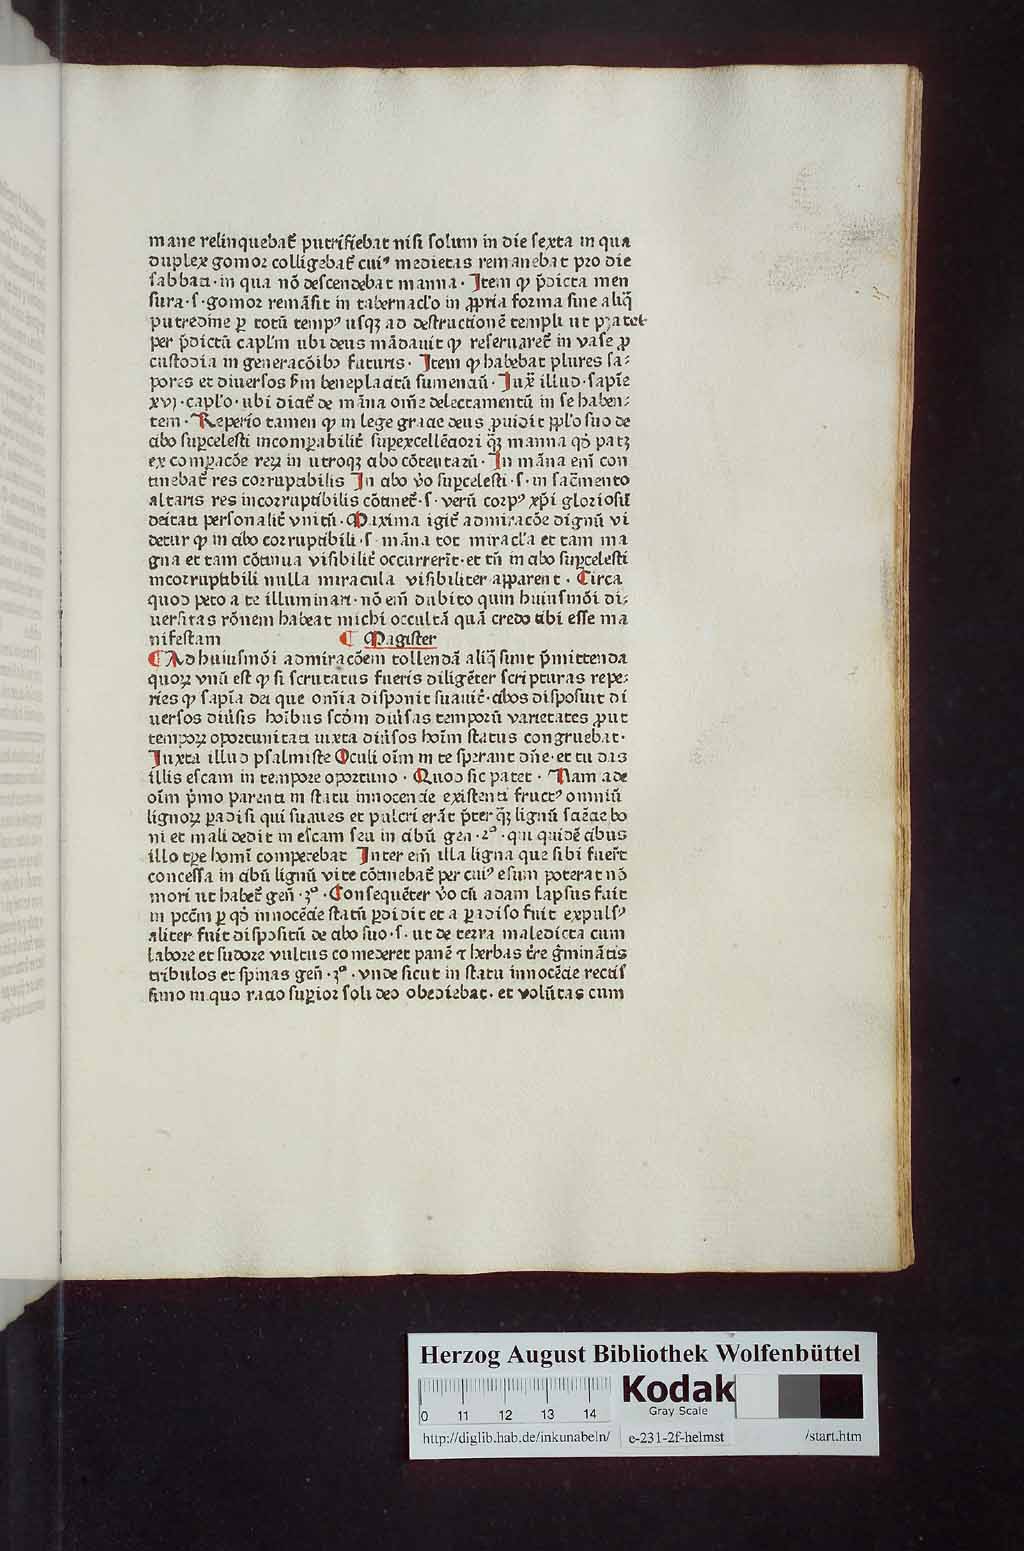 mane relinquebat᷑ putrifiebat nisi solum in die sexta in qua
duplex gomor colligebat᷑ cuiꝰ medietas remanebat pro die
sabbati · in qua nō descendebat manna · Item ꝙ p̄dicta men
sura · s · gomor remāsit in tabernac̄lo in ꝓpria forma sine aliq̄
putredine ꝑ totū tempꝰ usqꝫ ad destructionē templi ut patet
per p̄dictū capl̄m ubi deus mādauit ꝙ reseruaret᷑ in vase ꝓ
custodia in generacōibꝰ futuris · Item ꝙ habebat plures sa⸗
pores et diuersos s̄m beneplacitū sumenciū · Iux̄ illud · sapīe
xvj · capl̄o · ubi dicit᷑ de māna om̄e delectamentū in se haben⸗
tem · Reperio tamen ꝙ in lege gracie deus ꝓuidit ppl̄o suo de
cibo suꝑcelesti incomꝑabilit᷑ suꝑexcellēciori q̄ꝫ manna qđ patꝫ
ex comꝑacōe reꝝ in utroqꝫ cibo cōtentarū · In māna em̄ con
tinebat᷑ res corruptibilis In cibo v̄o suꝑcelesti · s · in sac̄mento
altaris res incorruptibilis cōtinet᷑ · s · verū corpꝰ xp̄i gloriosū
deitati personalit᷑ vnitū · Maxima igit᷑ admiracōe dignū vi
detur ꝙ in cibo corruptibili · s · māna tot mirac̄la et tam ma
gna et tam cōtinua visibilit᷑ occurrerīt · et tn̄ in cibo suꝑcelesti
incorruptibili nulla miracula visibiliter apparent · Circa
quod peto a te illuminari · nō em̄ dubito quin huiusmōi di⸗
uersitas rōnem habeat michi occultā quā credo tibi esse ma
nifestam ¶ Magister
¶ Ad huiusmōi admiracōem tollendā aliq̄ sunt p̄mittenda
quoꝝ vnū est ꝙ si scrutatus fueris diligēter scripturas repe⸗
ries ꝙ sapīa dei que om̄ia disponit suauit᷑ · cibos disposuit di
uersos diūsis hoībus scdm̄ diūsas temporū varietates ꝓut
tempoꝝ oportunitati iuxta diūsos hoīm status congruebat ·
Iuxta illud psalmiste Oculi oīm in te sperant dn̄e · et tu das
illis escam in tempore oportuno · Quod sic patet · Nam ade
oīm p̄mo parenti in statu innocencie existenti fructꝰ omniū
lignoꝝ ꝑadisi qui suaues et pulcri erāt p̄ter q̄ꝫ lignū sciēcie bo
ni et mali dedit in escam seu in cibū gen̄ · 2º · qui quidē cibus
illo tꝑe homī competebat Inter em̄ illa ligna que sibi fuerūt
concessa in cibū lignū vite cōtinebat᷑ per cuiꝰ esum poterat nō
mori ut habet᷑ gen̄ · 3º · Consequēter v̄o cū adam lapsus fuit
in pcc̄m ꝑ qđ innocēcie statū ꝑdidit et a ꝑadiso fuit expulsꝰ
aliter fuit dispositū de cibo suo · s · ut de terra maledicta cum
labore et sudore vultus comederet panē ⁊ herbas t̄re ḡminātis
tribulos et spinas gen̄ · 3º · vnde sicut in statu innocēcie rectis
simo in quo racio suꝑior soli deo obediebat · et volūtas cum
Herzog August Bibliothek Wolfenbüttel
0 11 12 13 14
Kodak
Gray Scale
http://diglib.hab.de/inkunabeln/ e-231-2f-helmst /start.htm